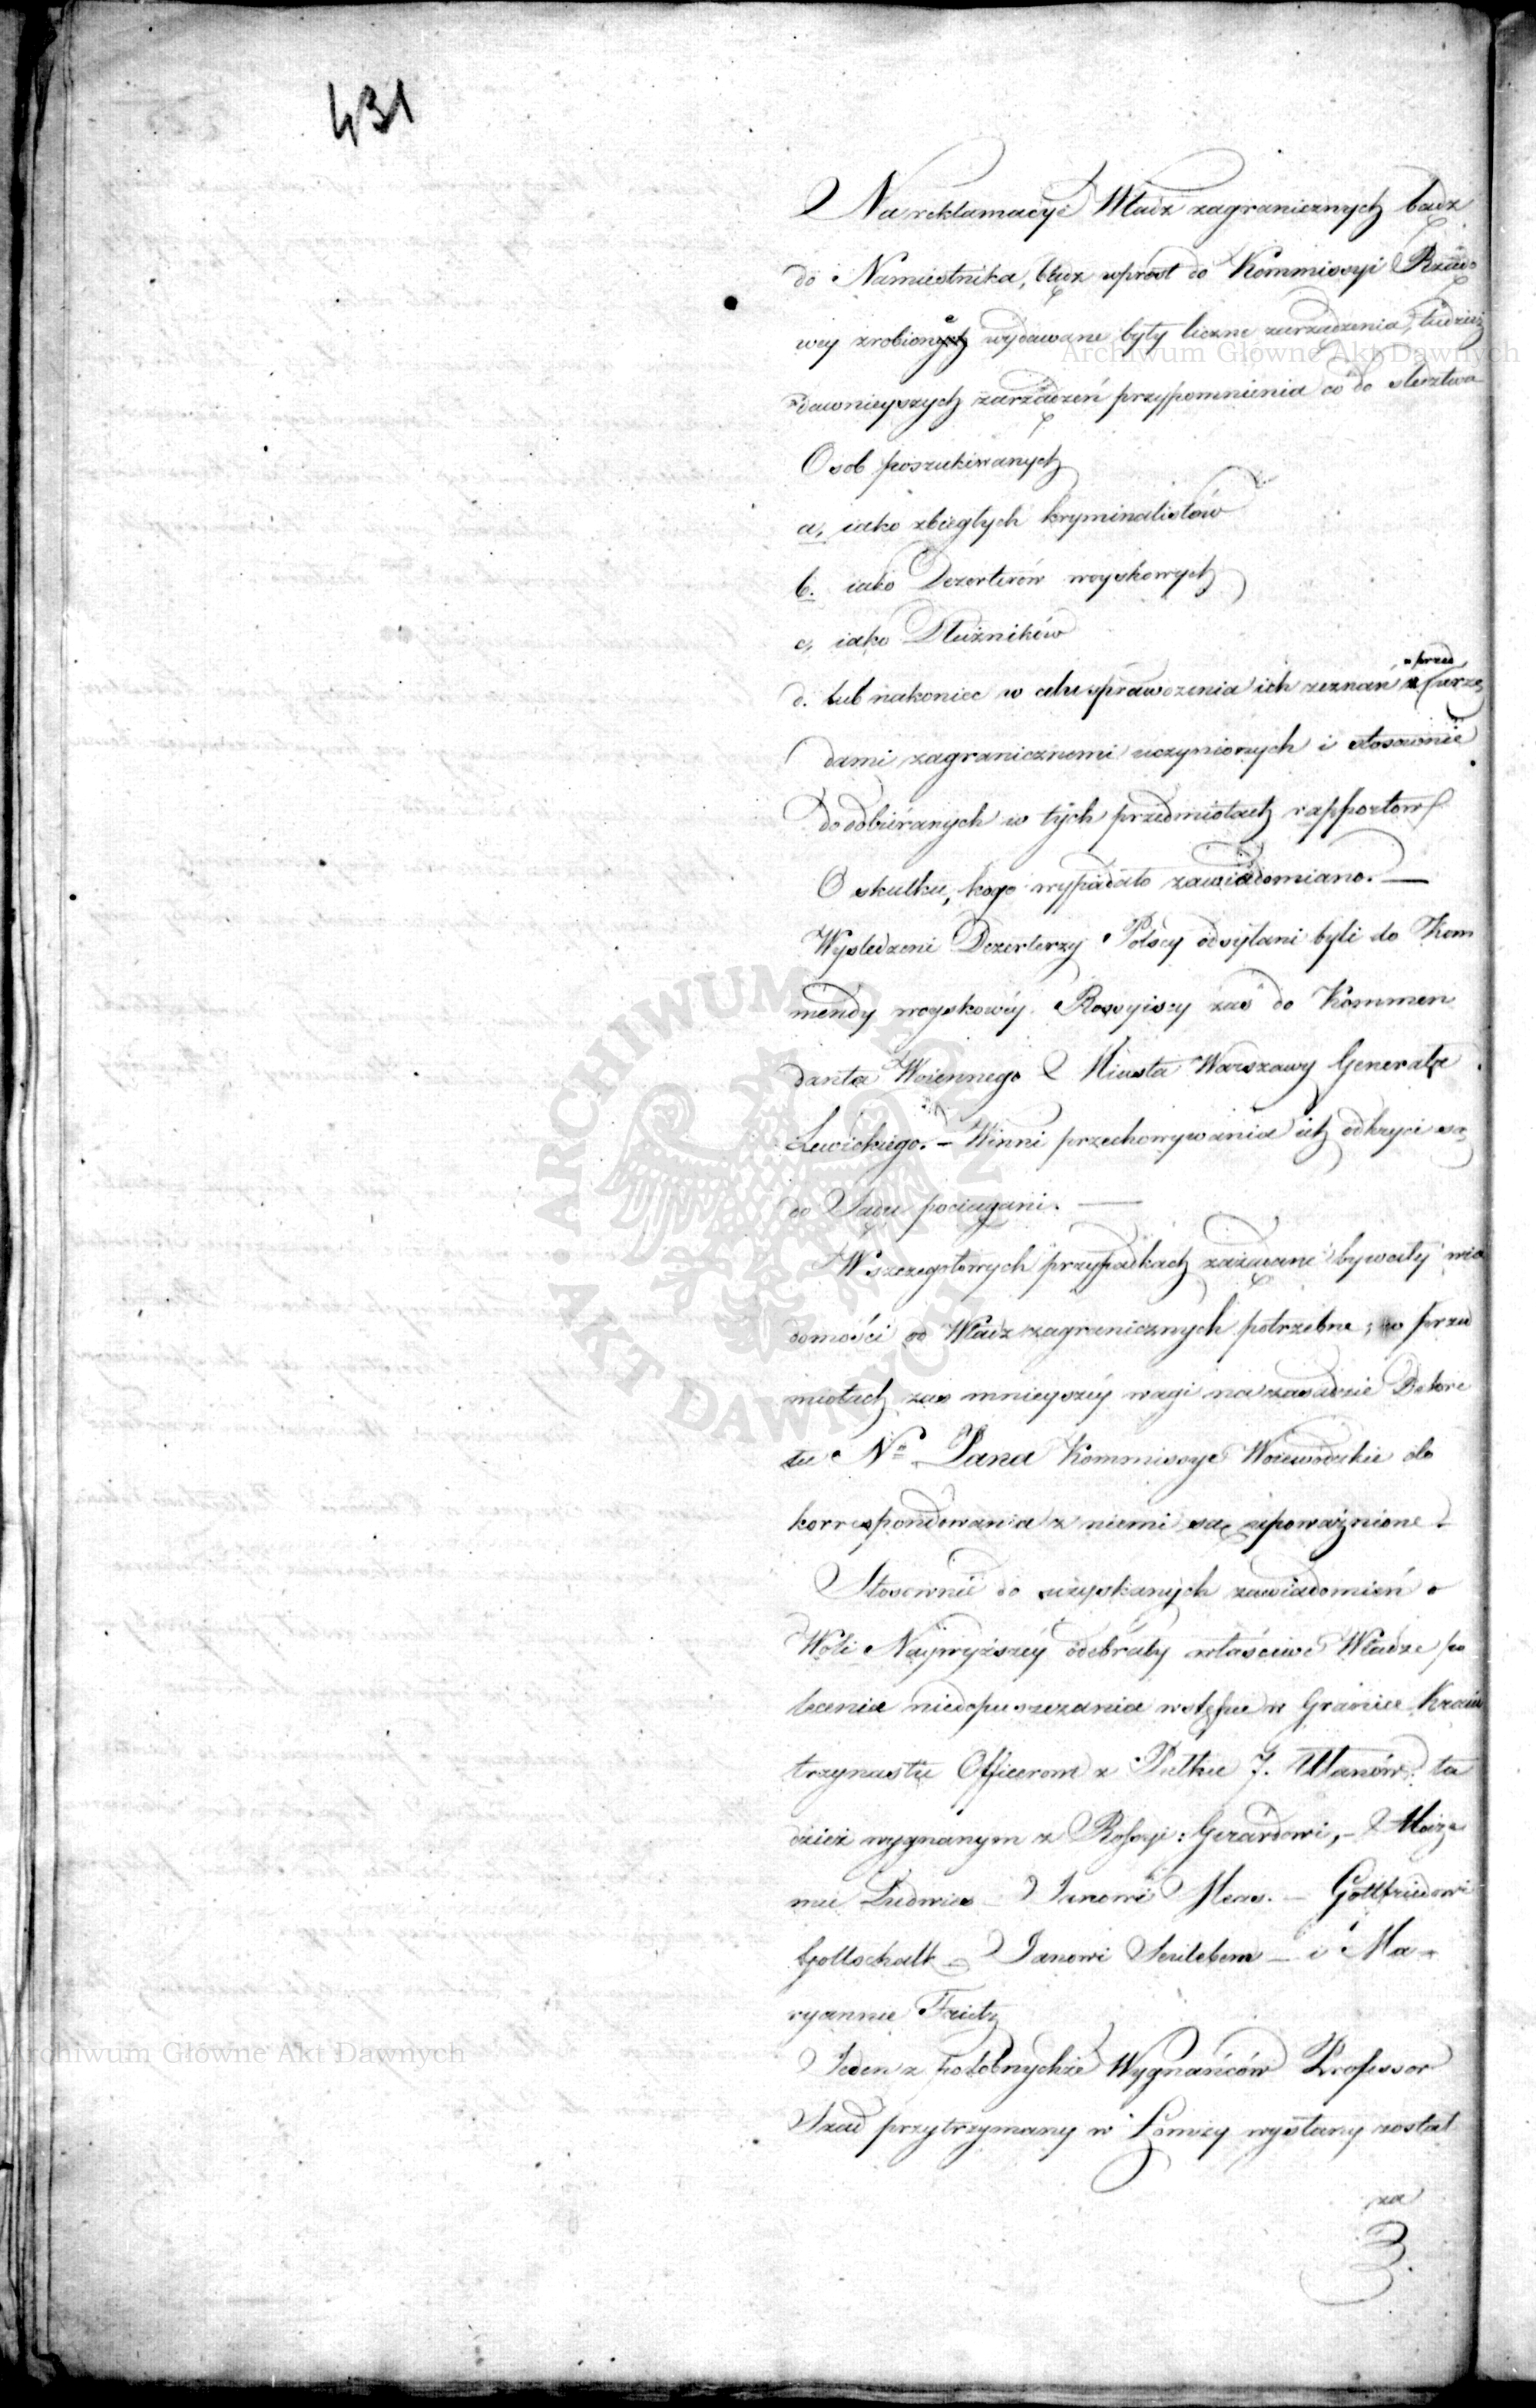 431
Na reklamacye Władz zagranicznych bądz
do Namiestnika, bądz wprost do Kommissyi Rządo
wey zrobione wydawane były liczne zarządzenia, tudzież
dawnieyszych zarządzeń przypomnienia co do sledztwa
Osob poszukiwanych
a, iako zbiegłych kryminalistów
b. iako Dezerterów woyskowych
c, iako Dłużników
d. lub nakoniec w celu sprawdzenia ich zeznań przed Urzę
dami zagranicznemi uczynionych i stosownie
do odbiéranych w tych przedmiotach rapportow
O skutku, kogo wypadało zawiadomiano. —
Wysledzeni Dezerterzy Polscy odsyłani byli do Kom
mendy woyskowéy Rossyiscy zaś do Kommen
danta Woiennego Miasta Warszawy Generała
Lewickiego. – Winni przechowywania ich odkryci są
do Sądu pociągani. —
W szczegołowych przypadkach zażądane bywały wia
domości od Władz zagranicznych potrzebne; w przed
miotach zas mnieyszéy wagi na zasadzie Dekre
tu Nº Pana Kommissye Woiewodzkie do
korrespondowania z niemi są upoważnione.
Stosownie do uzyskanych zawiadomień o
Woli Naywyższéy odebrały właściwe Władze po
lecenia niedopuszczania wstępu w Granice Kraiu
trzynastu Officerom z Pułku 7. Ułanów, tu
dzież wygnanym z Rossyi: Gerardowi, –
mu Ludwice – Janowi – Gottfriedowi
Gottschalk – Janowi – i Ma-
ryannie
Jeden z podobnychże Wygnańców Professor
przytrzymany w Łomży wysłany został
za
3.
Archiwum Główne Akt Dawnych
Archiwum Główne Akt Dawnych
ARCHIWUM GŁÓWNE AKT DAWNYCH